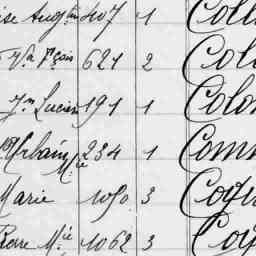 ise Augtin 407 1 Coll
Va Fçois 621 2 Col
Jn Lucien 191 1 Colo
Urbain Mie 234 1 Com
Marie 1090 3 Coqu
Pierre Mie 1062 3 Coq